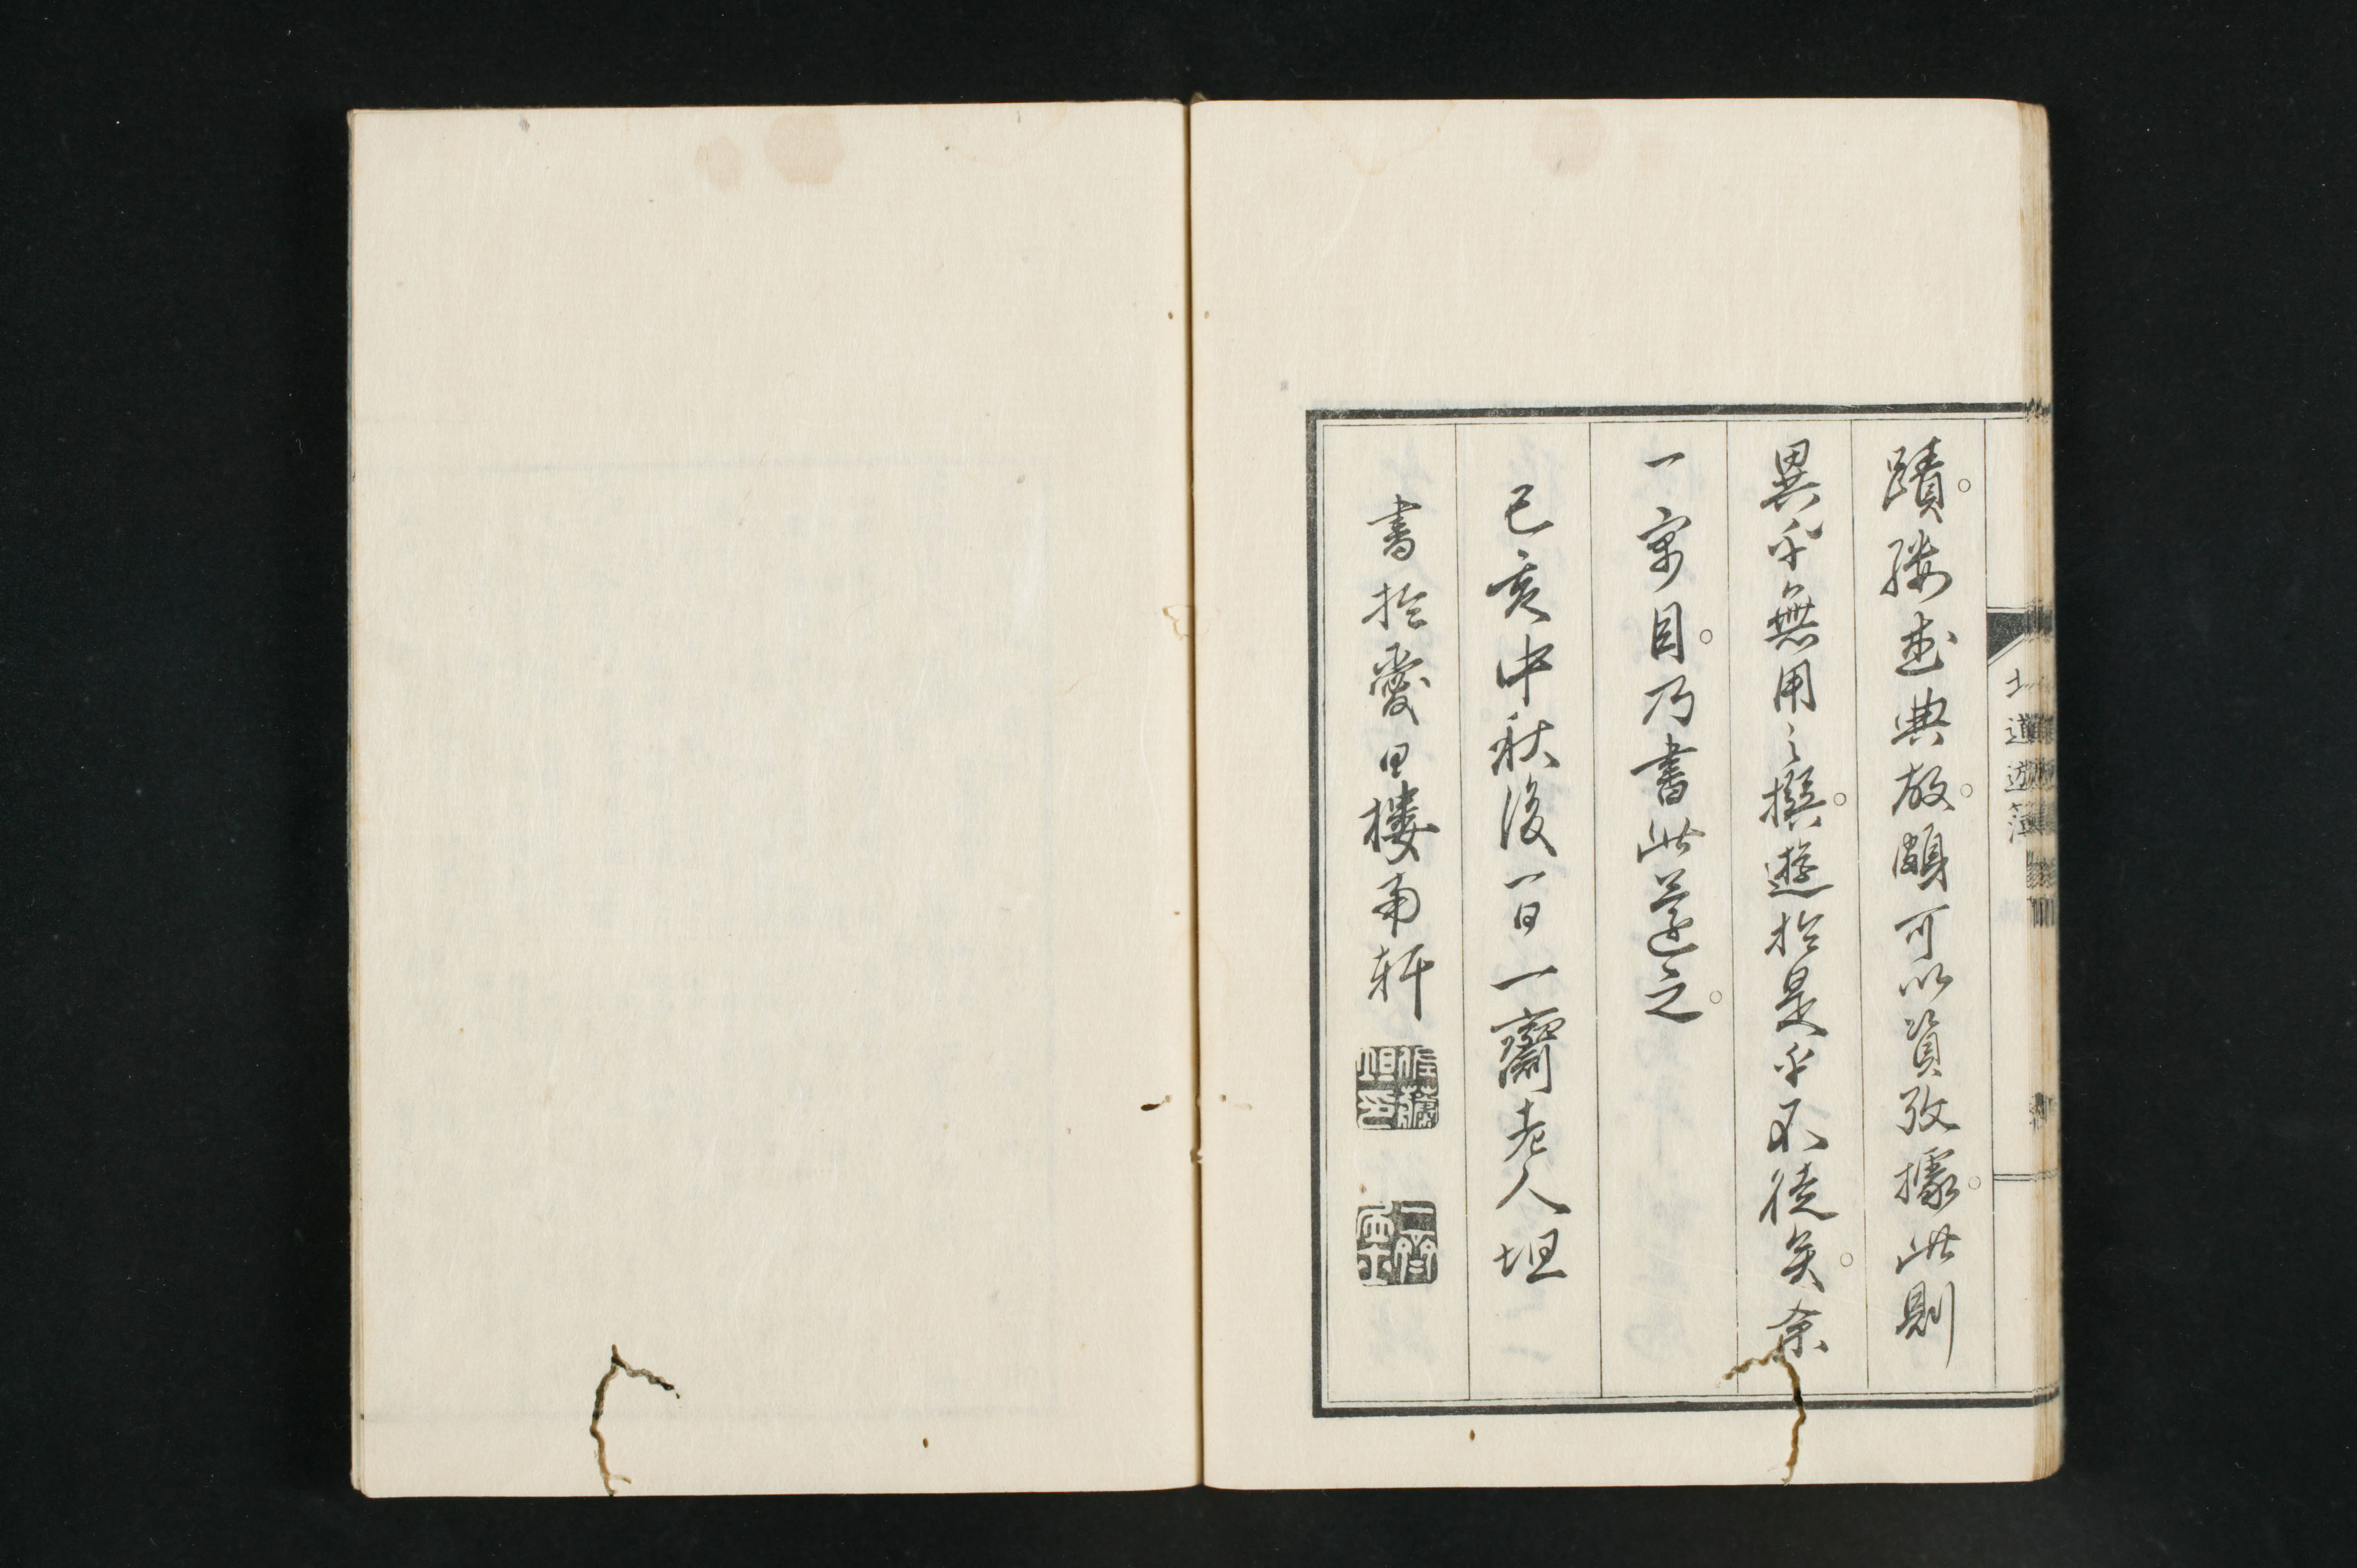 北道遊簿
蹟。縷述典故。頗可以資攷據。此則
異乎無用之撰。遊於是乎不徒矣。余
一寓目。乃書此還之。
己亥中秋後一日一齋老人坦
書於愛日樓南軒
佐藤坦印